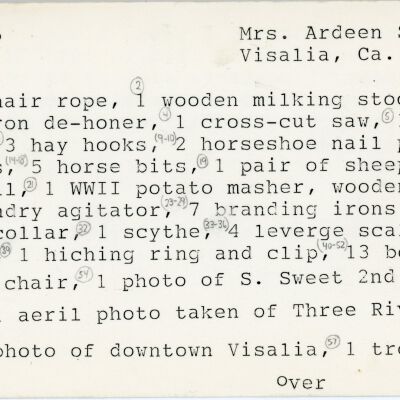 Mrs. Ardeen S
Visalia, Ca.
hair rope, (2) 1 wooden milking stoo
ron de-honer, (4) 1 cross-cut saw, (5) 1
3 hay hooks, (9-10) 2 horseshoe nail p
s, (14-18) 5 horse bits, (19) 1 pair of sheep
ll, (21) 1 WWII potato masher, wooden
ndry agitator, (23-29) 7 branding irons
collar, (32) 1 scythe, (33-36) 4 leverge scal
(39) 1 hiching ring and clip, (40-52) 13 bo
chair, (54) 1 photo of S. Sweet 2nd
1 aeril photo taken of Three Riv
photo of downtown Visalia, (57) 1 tro
Over